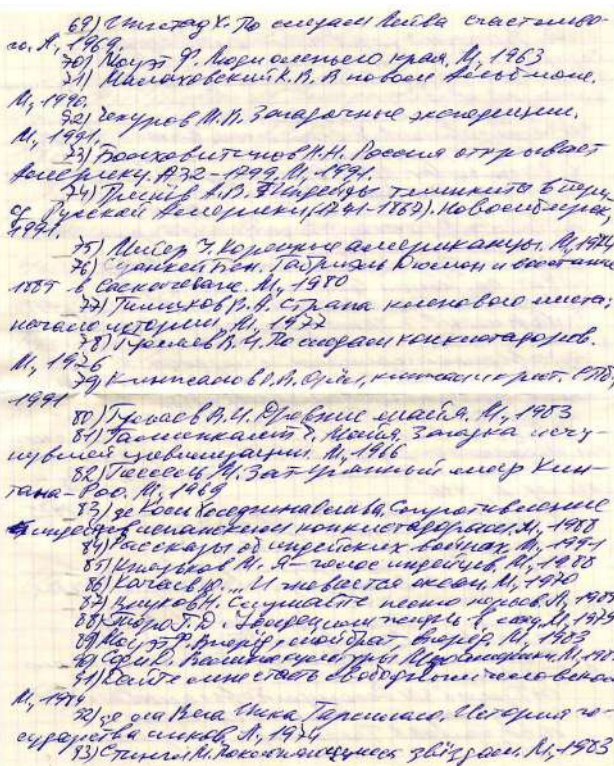 69) Ингстад Х. По следам Лейва счастливо-
го. Л., 1969.
70) Моуэт Ф. Люди оленьего края. М., 1963
71) Малаховский К. В. В новом Альбионе.
М., 1990.
72) Чекуров М.В. Загадочные экспедиции.
М., 1991.
73) Болховитинов Н.Н. Россия открывает
Америку. 1732-1799. М., 1991.
74) Гринёв А.В. Индейцы тлинкиты в пери-
од Русской Америки (1741-1867). Новосибирск
1991.
75) Ч. Коренные американцы. М., 1974
76) Бен. Габриэль Дюмон и восстание
1885 в Саскачеване. М., 1980
77) Тишков В.А. Страна кленового листа:
начало истории. М., 1977
78) Гуляев В.И. По следам конкистадоров.
М., 1976
79) А. СПб.
1991
80) Гуляев В.И. Древние майя. М., 1983
81) Галленкамп Ч. Майя. Загадка исчез-
нувшей цивилизации. М., 1966
82) Пессель М. Затерянный мир Кин-
тана-Роо. М., 1969
83) де Сопротивление
индейцев испанским конкистадорам. М., 1988
84) Рассказы об индейских войнах. М., 1991
85) М. Я - голос индейцев. М., 1988
86) Качаев Ю. ...И гневается океан. М., 1970
87) Внуков Н. Слушайте песню перьев. Л., 1985
88) Торо Г.Д. Уолден, или жизнь в лесу. М., 1979
89) Моуэт Ф. Вперёд, мой брат, вперёд. М., 1983
90) культуры М.
91) Дайте мне стать свободным человеком
М., 1984
92) де ла Вега Инка Гарсиласо. История го-
сударства инков. Л., 1974
93) Стингл М. Поклоняющиеся звёздам. М., 1983